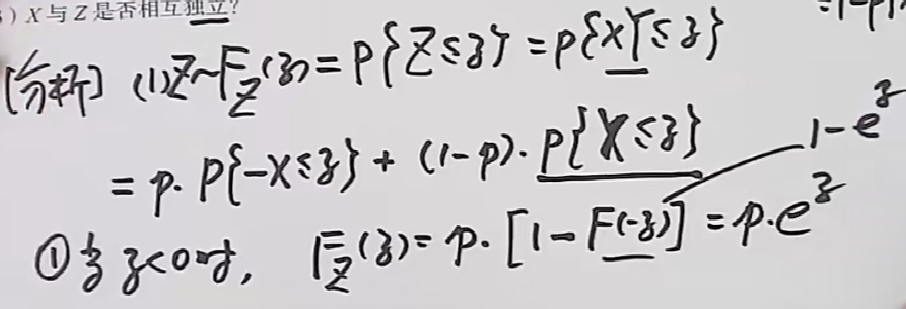 ) X与Z是否相互独立?
=1-p
[分析] (1) Z~F_Z(z)=P{Z≤z}=P{XY≤z}
=p·P{-X≤z}+(1-p)·P{X≤z}
1-e^z
①当z<0时, F_Z(z)=p·[1-F(-z)]=p·e^z